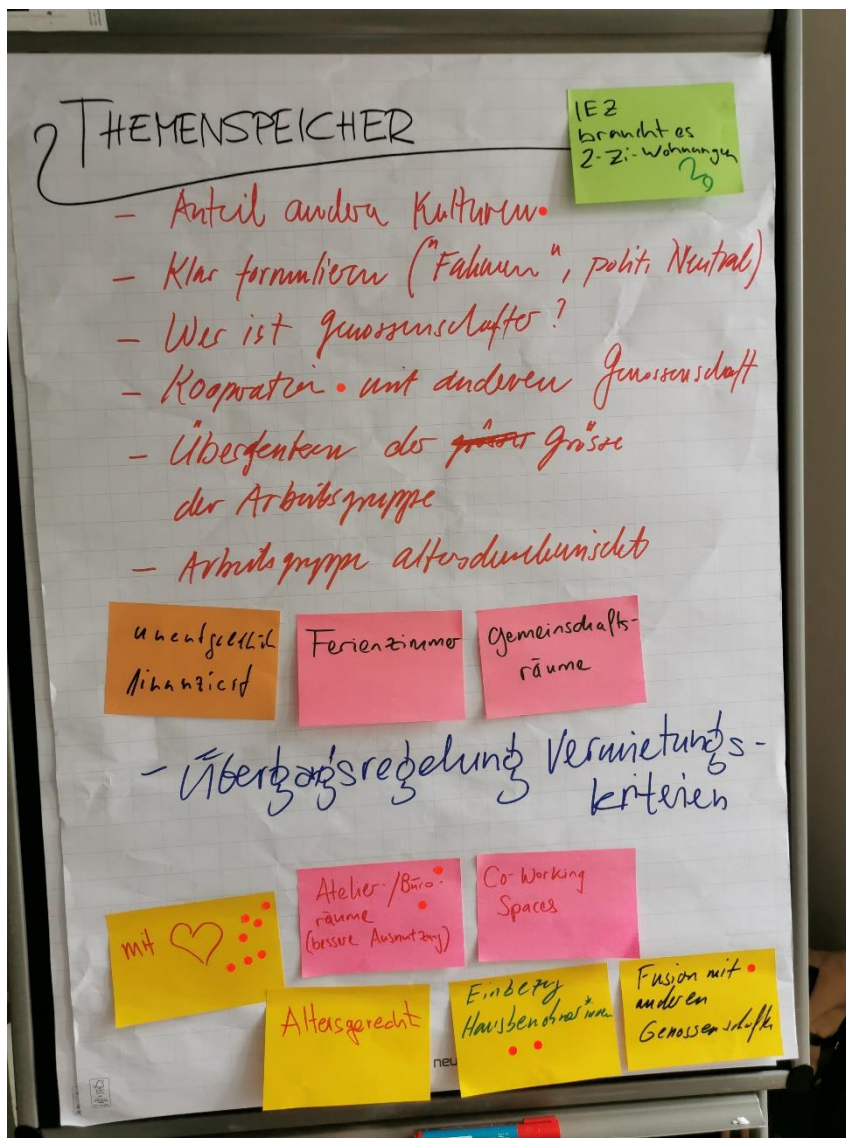 THEMENSPEICHER
IEZ
braucht es
2-Zi-Wohnungen
- Anteil andern Kulturen
- Klar formulieren ("Fahnen", polit. Neutral)
- Wer ist Genossenschafter?
- Kooperation mit anderen Genossenschaft
- Überdenken der grösser Grösse
der Arbeitsgruppe
- Arbeitsgruppe altersdurchmischt
unentgeltlich
finanziert
Ferienzimmer
Gemeinschafts-
räume
- Übergangsregelung Vermietungs-
kriterien
mit
Atelier-/Büro-
räume
(bessere Ausnutzung)
Co-Working
Spaces
Altersgerecht
Einbezug
Hausbewohner*innen
Fusion mit
anderen
Genossenschaften
neu